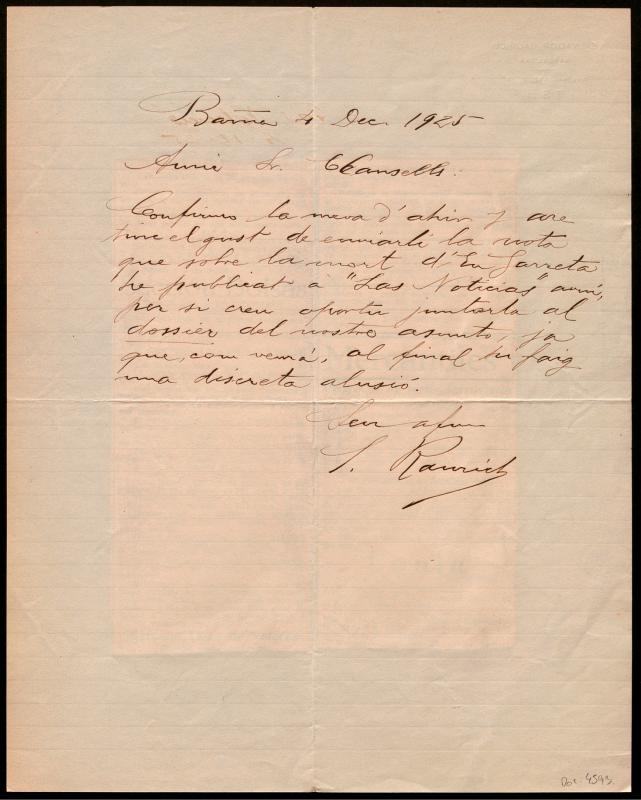 Barna 4 Dec. 1925
Amic Sr. Cansells:
Confirmo la meva d'ahir y are
tinc el gust de enviarli la nota
que sobre la mort d'En Garreta
he publicat à "Las Noticias" avui,
per si creu oportu juntarla al
dossier del nostre asunto, ja
que, com veurá, al final hi faig
una discreta alusió.
Seu afm
S. Raurich
Doc. 4593.